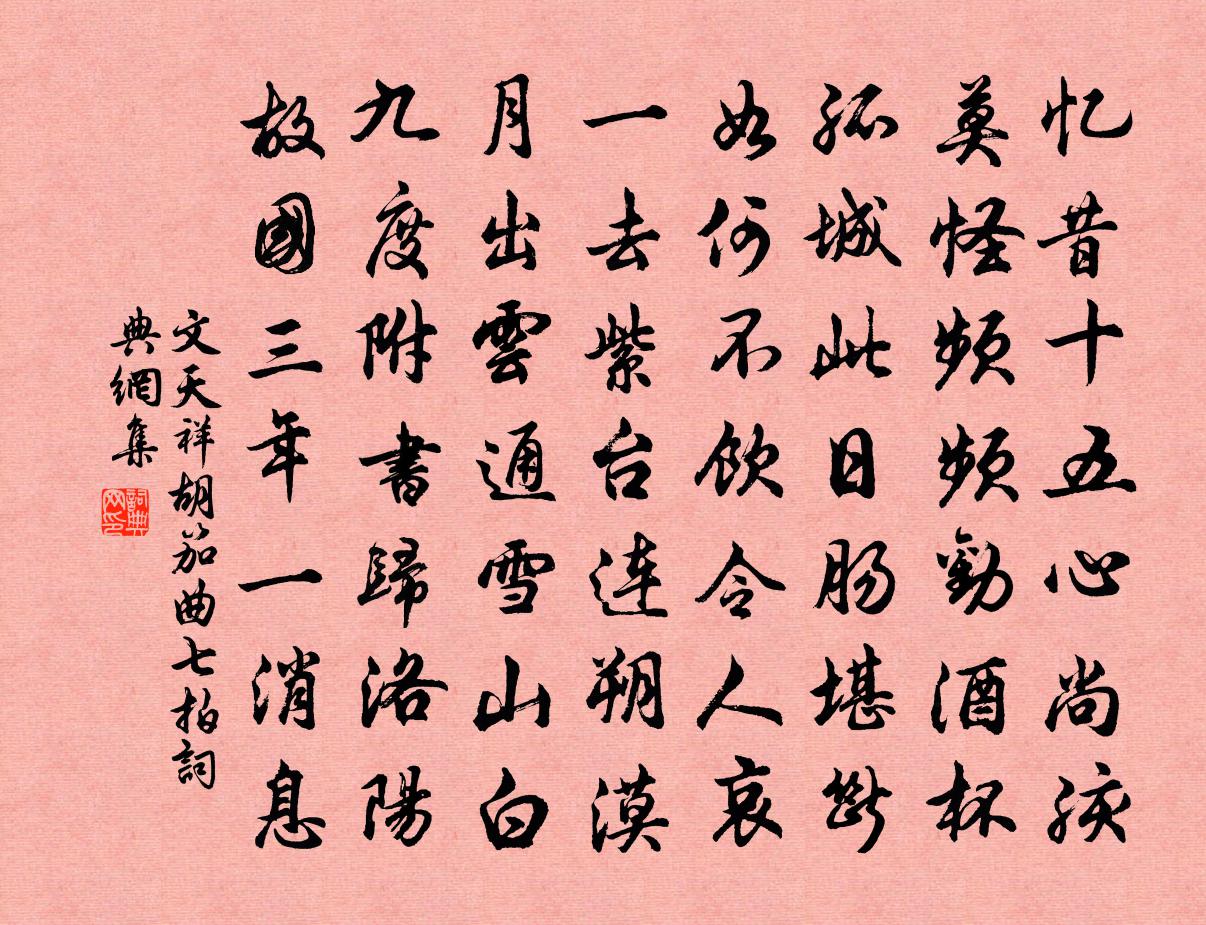 忆昔十五心尚孩
莫怪频频勸酒杯
孤城此日肠堪斷
如何不飲令人哀
一去紫台連朔漠
月出雲通雪山白
九度附書歸洛陽
故國三年一消息
文天祥胡笳曲七拍詞
典網集
詞典
网印